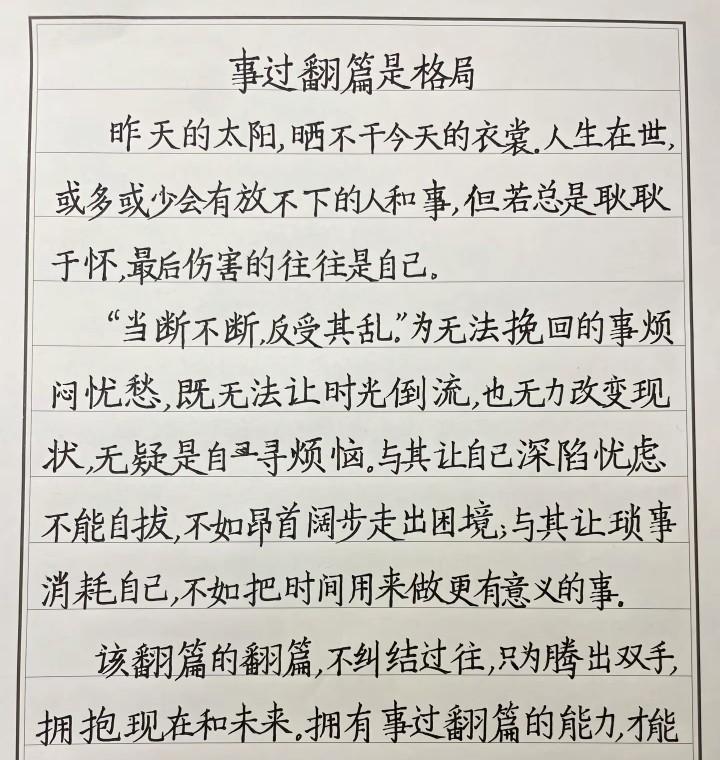 事过翻篇是格局
昨天的太阳,晒不干今天的衣裳.人生在世,
或多或少会有放不下的人和事,但若总是耿耿
于怀,最后伤害的往往是自己。
“当断不断,反受其乱.”为无法挽回的事烦
闷忧愁,既无法让时光倒流,也无力改变现
状,无疑是自寻烦恼。与其让自己深陷忧虑、
不能自拔,不如昂首阔步走出困境;与其让琐事
消耗自己,不如把时间用来做更有意义的事.
该翻篇的翻篇,不纠结过往,只为腾出双手,
拥抱现在和未来.拥有事过翻篇的能力,才能